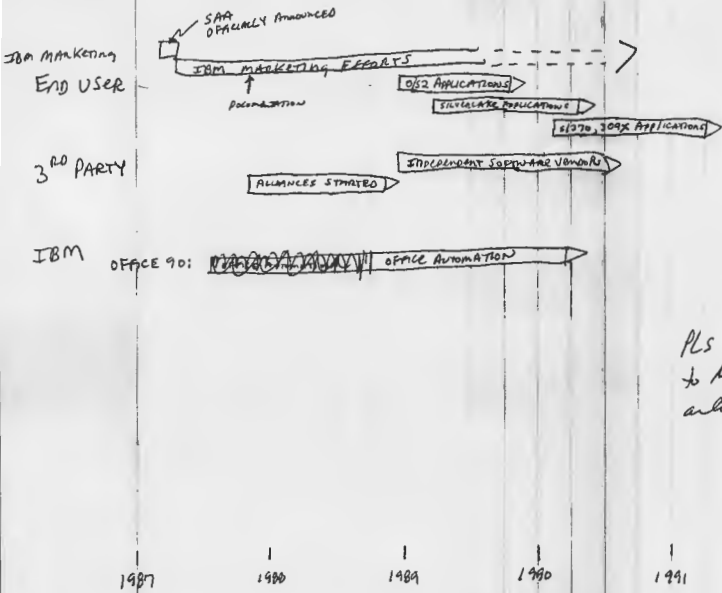 SAA
OFFICIALLY ANNOUNCED
IBM MARKETING
IBM MARKETING EFFORTS
END USER
O/S2 APPLICATIONS
DOCUMENTATION
SILVERLAKE APPLICATIONS
S/370, 309X APPLICATIONS
3RD PARTY
INDEPENDENT SOFTWARE VENDORS
ALLIANCES STARTED
IBM
OFFICE 90:
OFFICE AUTOMATION
PLS
to
1987
1988
1989
1990
1991